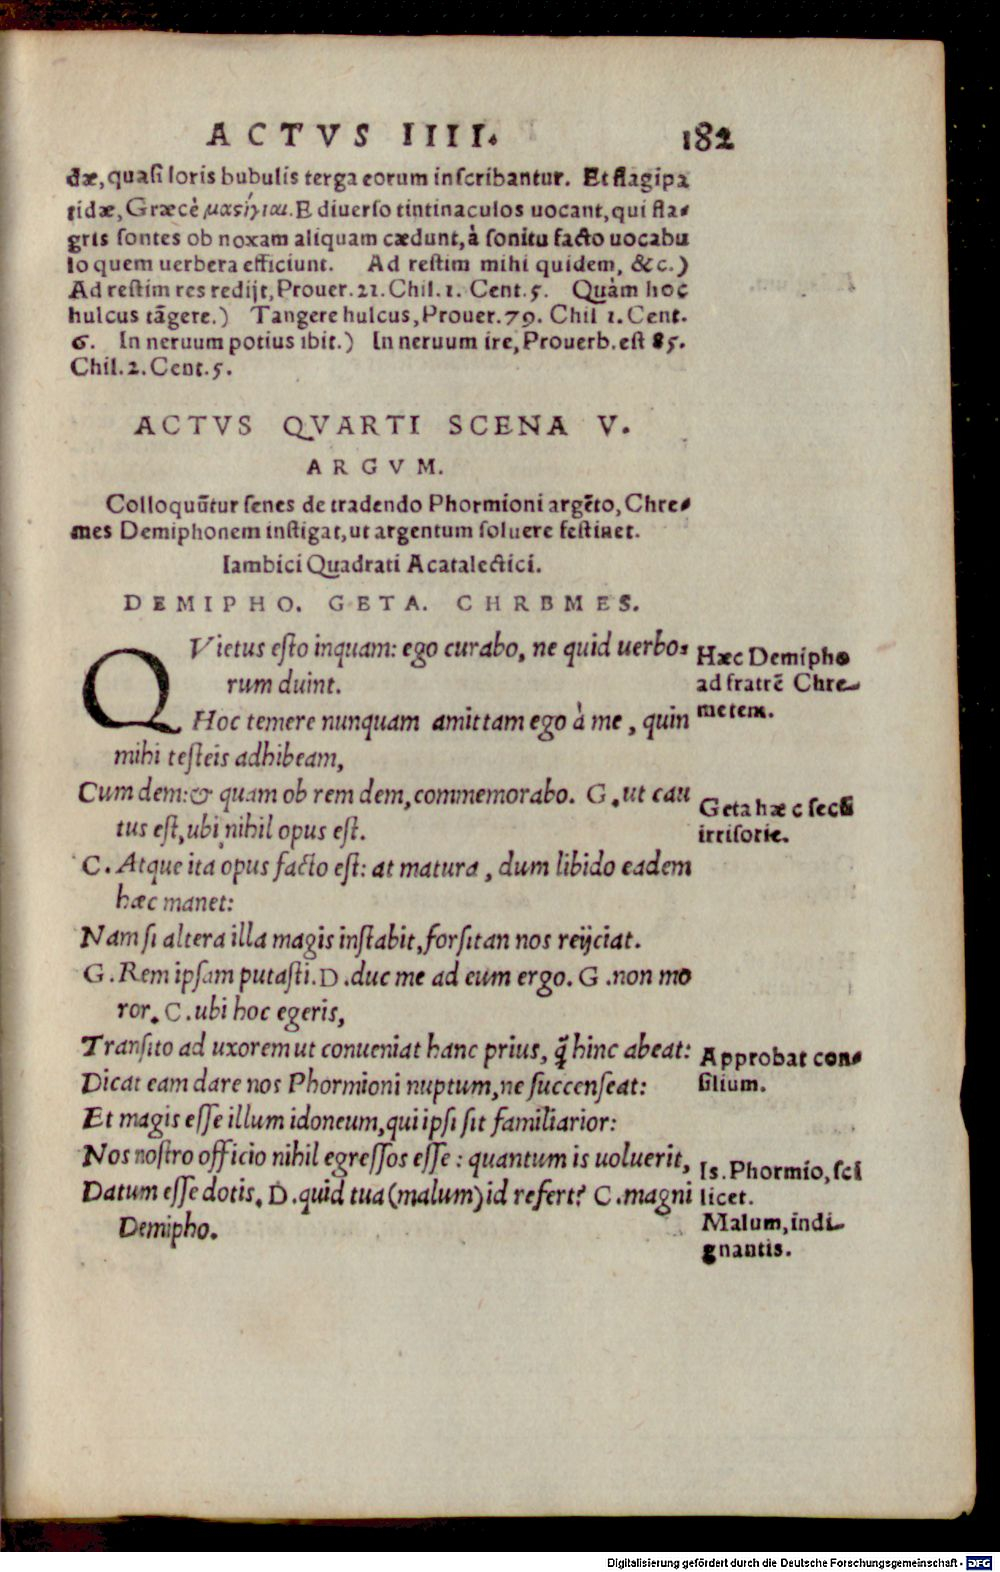 ACTVS IIII. 182
dæ, quasi loris bubulis terga eorum inscribantur. Et flagipa
tidæ, Græcè μαστίγιαι. E diuerso tintinaculos uocant, qui fla-
gris sontes ob noxam aliquam cædunt, à sonitu facto uocabu
lo quem uerbera efficiunt. Ad restim mihi quidem, &c.)
Ad restim res redijt, Prouer. 21. Chil. 1. Cent. 5. Quàm hoc
hulcus tãgere.) Tangere hulcus, Prouer. 79. Chil 1. Cent.
6. In neruum potius ibit.) In neruum ire, Prouerb. est 85.
Chil. 2. Cent. 5.
ACTVS QVARTI SCENA V.
ARGVM.
Colloquũtur senes de tradendo Phormioni argẽto, Chre-
mes Demiphonem instigat, ut argentum soluere festinet.
Iambici Quadrati Acatalectici.
DEMIPHO. GETA. CHREMES.
QVietus esto inquam: ego curabo, ne quid uerbo-
rum duint.
Hoc temere nunquam amittam ego à me, quin
mihi testeis adhibeam,
Cum dem: & quam ob rem dem, commemorabo. G. ut cau
tus est, ubi nihil opus est.
C. Atque ita opus facto est: at matura, dum libido eadem
hæc manet:
Nam si altera illa magis instabit, forsitan nos reijciat.
G. Rem ipsam putasti. D. duc me ad eum ergo. G. non mo
ror. C. ubi hoc egeris,
Transito ad uxorem ut conueniat hanc prius, q̃ hinc abeat:
Dicat eam dare nos Phormioni nuptum, ne succenseat:
Et magis esse illum idoneum, qui ipsi sit familiarior:
Nos nostro officio nihil egressos esse: quantum is uoluerit,
Datum esse dotis. D. quid tua (malum) id refert? C. magni
Demipho.
Hæc Demipho
ad fratrẽ Chre-
metem.
Geta hæc secũ
irrisorie.
Approbat con-
silium.
Is. Phormio, sci
licet.
Malum, indi-
gnantis.
Digitalisierung gefördert durch die Deutsche Forschungsgemeinschaft - DFG